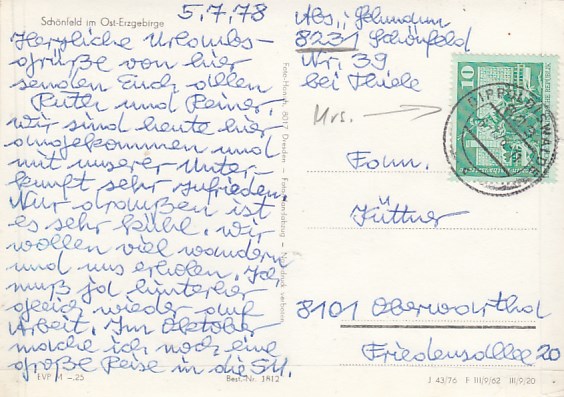 Schönfeld im Ost-Erzgebirge
5.7.78
Herzliche Urlaubs-
grüße von hier
senden Euch allen
Ruth und Reiner.
Wir sind heute hier
angekommen und
mit unserer Unter-
kunft sehr zufrieden.
Nur draußen ist
es sehr kühl. Wir
wollen viel wandern
und uns erholen. Ich
muß ja hinterher
gleich wieder auf
Arbeit. Im Oktober
mache ich noch eine
große Reise in die SU.
EVP M –.25
Best.-Nr. 1812
8017 Dresden
Abs.:
8231 Schönfeld
Nr. 39
bei Thiele
Urs.
10
DIPPOLDISWALDE
Fam.
Jüttner
8101 Oberwartha
Friedensallee 20
J 43/76 F III/9/62 III/9/20